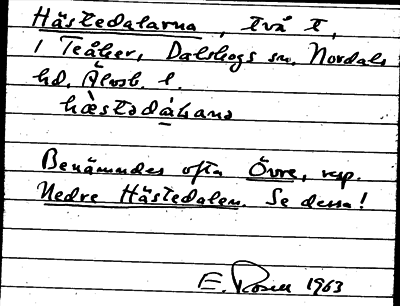 Hästedalarna, två t,
i Teåker, Dalskogs sn, Nordals
hd, Älvsb. l.
hæ̀stədáɫˌana
Benämndes ofta Övre, resp.
Nedre Hästedalen. Se dessa!
E. Rosell 1963